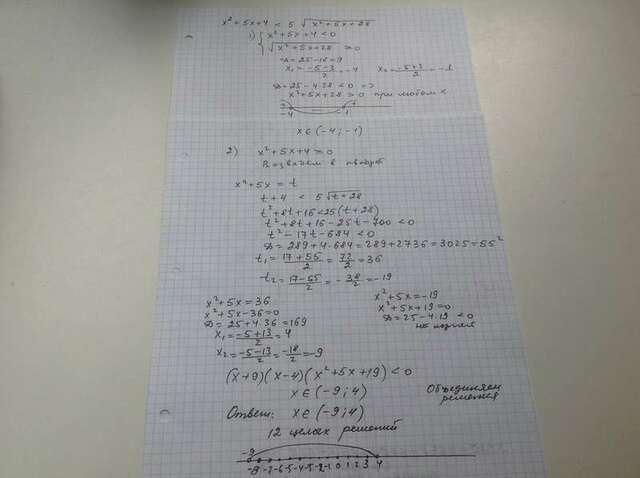 x² + 5x + 4 < 5 √(x² + 5x + 28)
1) { x² + 5x + 4 < 0
√(x² + 5x + 28) ≥ 0
D = 25 - 16 = 9
x₁ = (-5-3)/2 = -4 x₂ = (-5+3)/2 = -1
D = 25 - 4·28 < 0 =>
x² + 5x + 28 > 0 при любом x
-4 -1
x ∈ (-4; -1)
2) x² + 5x + 4 ≥ 0
Возведем в квадрат
x² + 5x = t
t + 4 < 5 √(t + 28)
t² + 8t + 16 < 25 (t + 28)
t² + 8t + 16 - 25t - 700 < 0
t² - 17t - 684 < 0
D = 289 + 4·684 = 289 + 2736 = 3025 = 55²
t₁ = (17+55)/2 = 72/2 = 36
t₂ = (17-55)/2 = -38/2 = -19
x² + 5x = 36
x² + 5x - 36 = 0
D = 25 + 4·36 = 169
x₁ = (-5+13)/2 = 4
x₂ = (-5-13)/2 = -18/2 = -9
x² + 5x = -19
x² + 5x + 19 = 0
D = 25 - 4·19 < 0
нет корней
(x+9)(x-4)(x² + 5x + 19) < 0
x ∈ (-9; 4)
Объединяем
решения
Ответ: x ∈ (-9; 4)
12 целых решений
-9 -8 -7 -6 -5 -4 -3 -2 -1 0 1 2 3 4